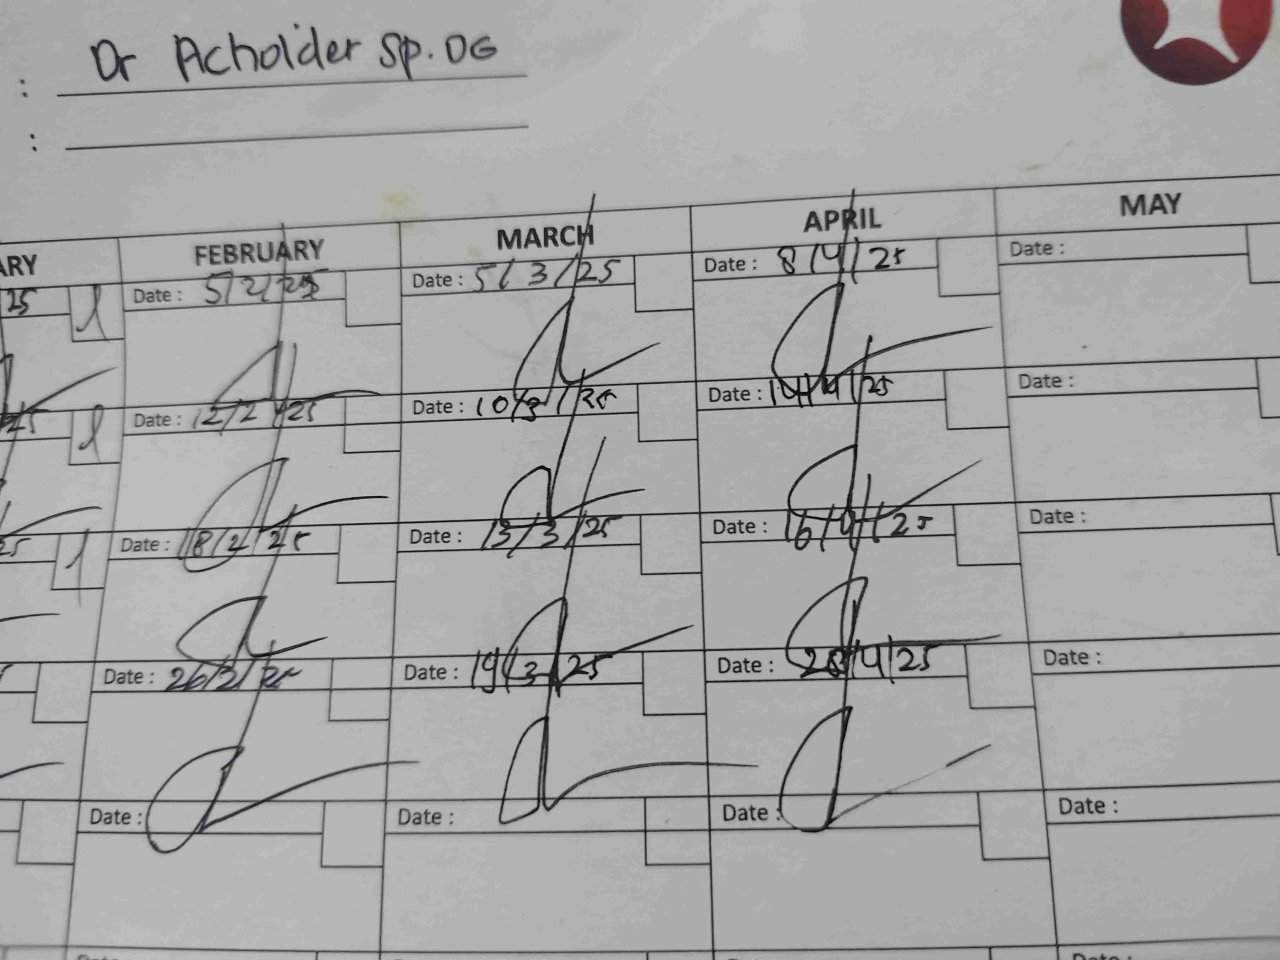 : Dr Acholder Sp. OG
:
ARY FEBRUARY MARCH APRIL MAY
25 Date : 5/2/25 Date : 5/3/25 Date : 8/4/25 Date :
25 Date : 12/2/25 Date : 10/3/25 Date : 14/4/25 Date :
25 Date : 18/2/25 Date : 13/3/25 Date : 16/4/25 Date :
Date : 26/2/25 Date : 19/3/25 Date : 28/4/25 Date :
Date : Date : Date : Date :
Date : Date :